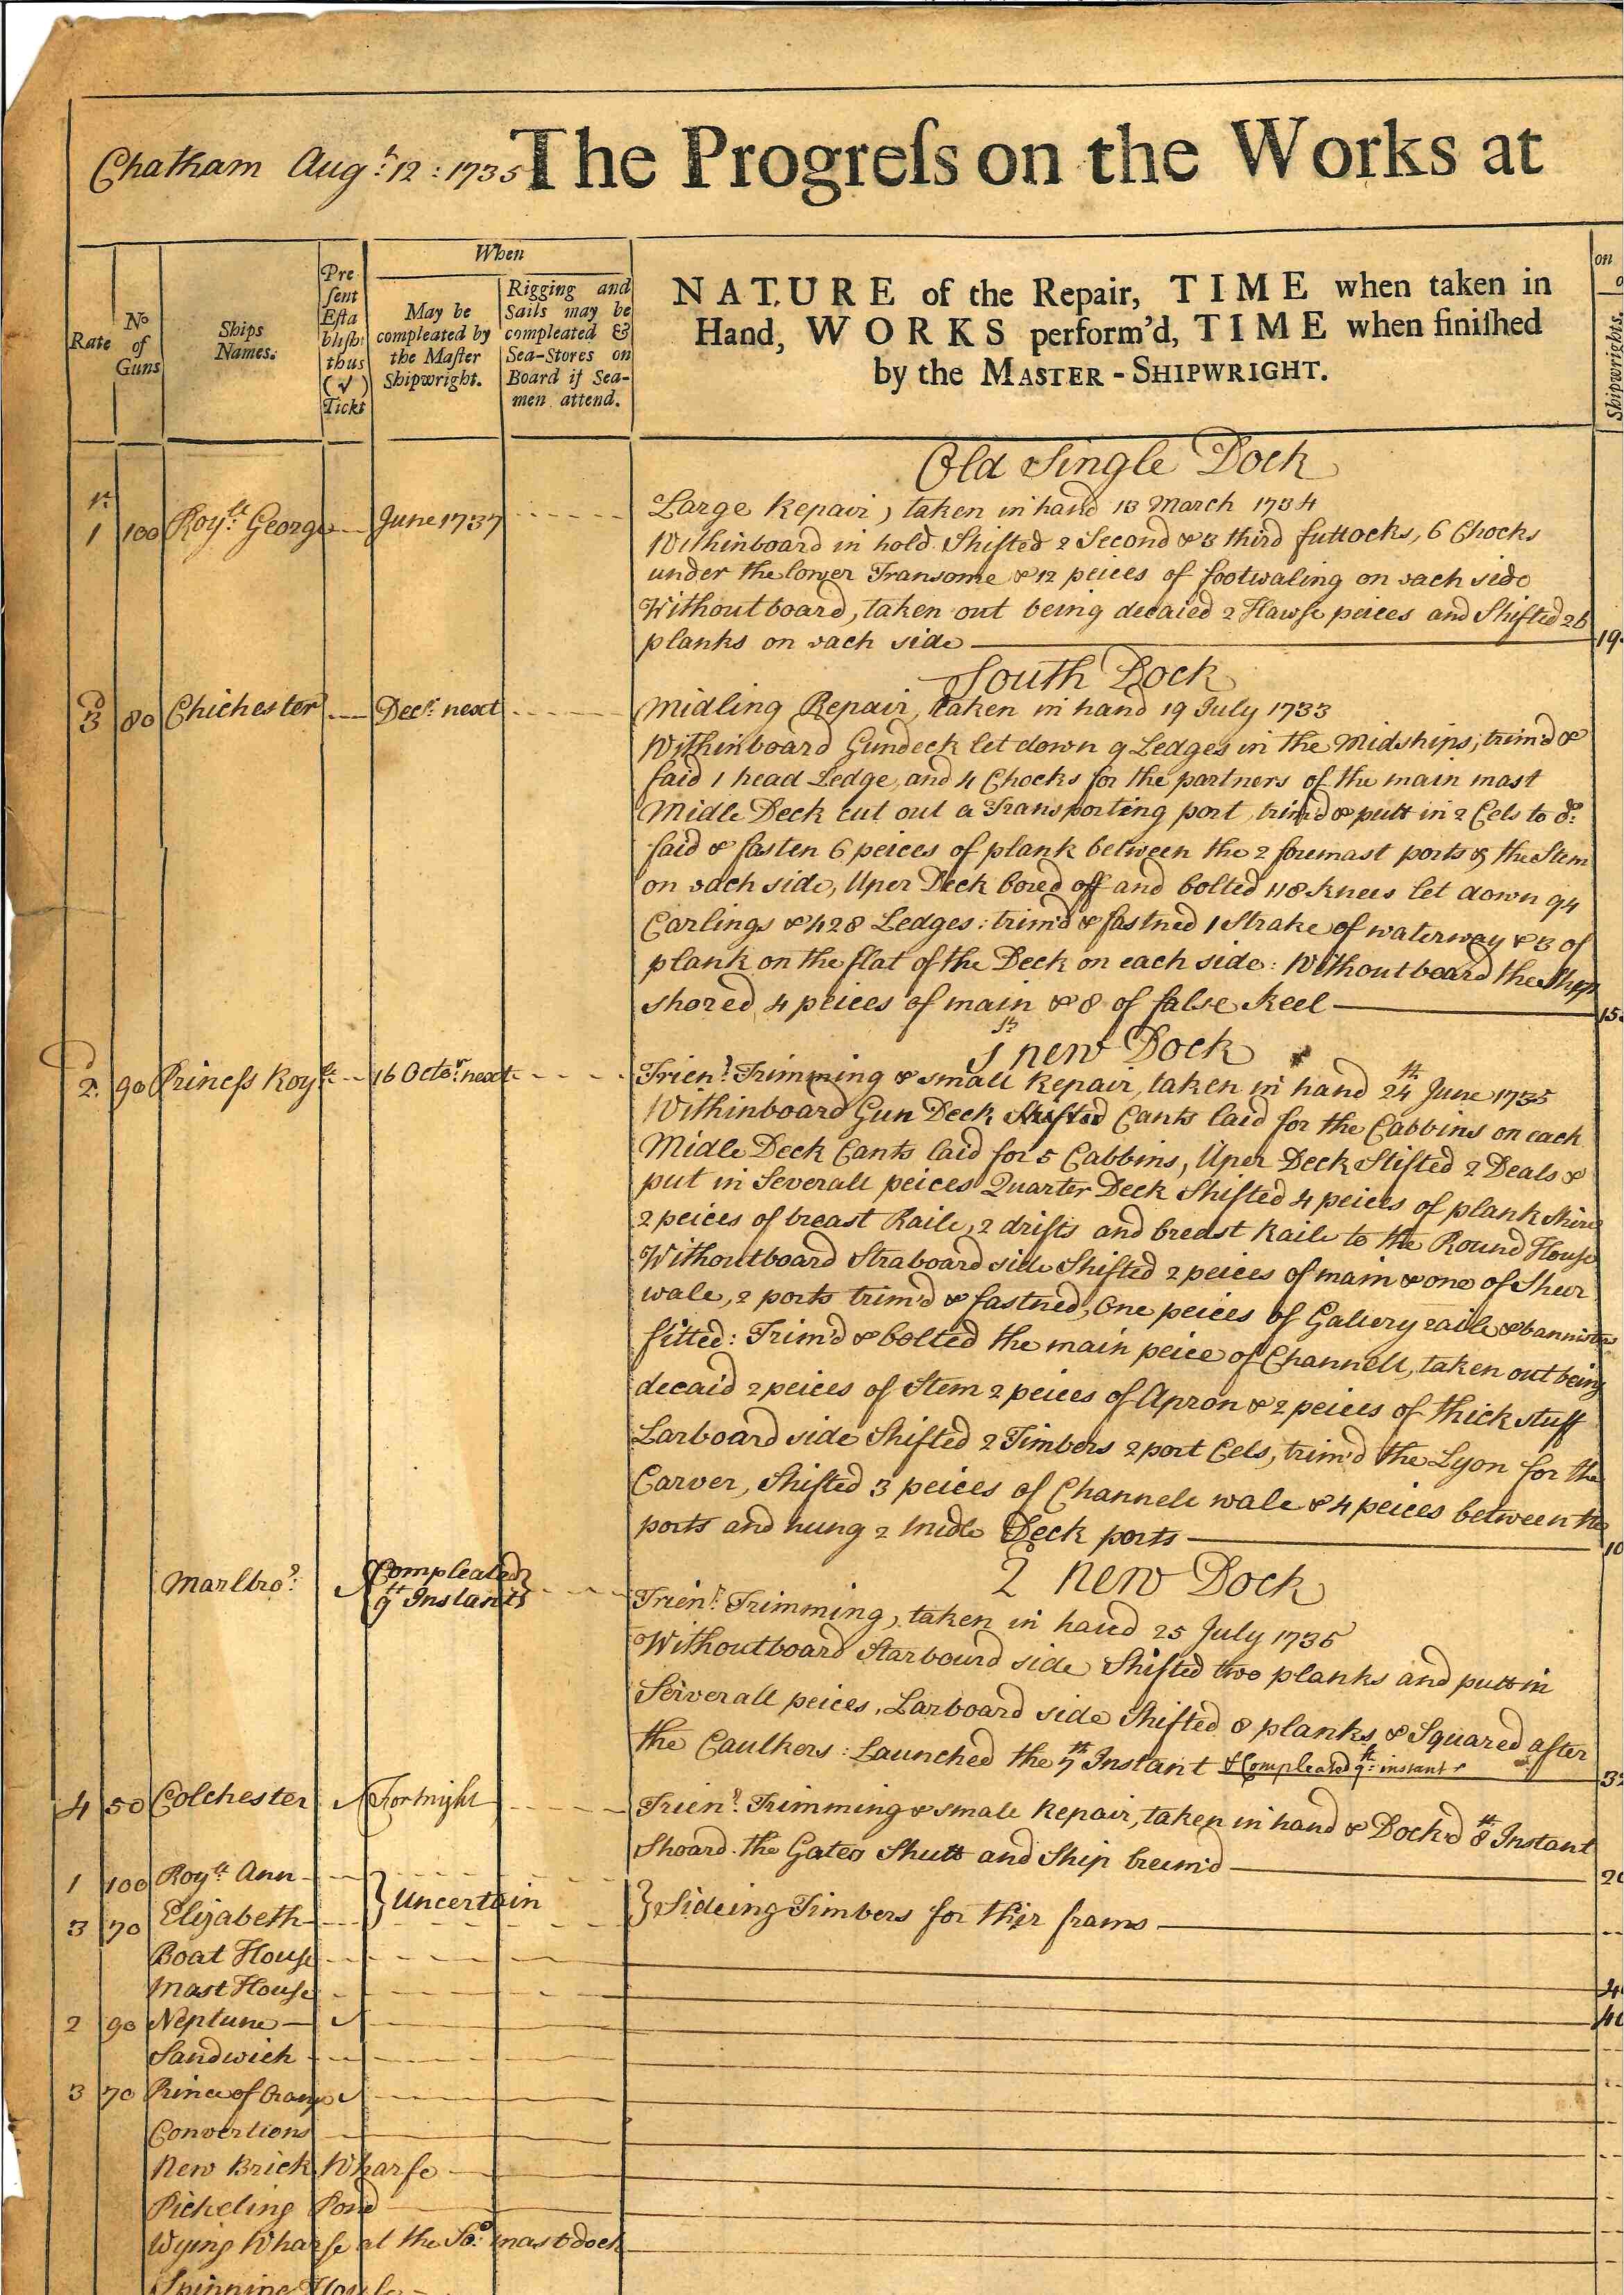 Chatham Aug.t 12: 1735 The Progreſs on the Works at
Rate
No of Guns
Ships Names.
Pre ſent Eſta bliſh: thus (√) Tickt
When
May be compleated by the Maſter Shipwright.
Rigging and Sails may be compleated & Sea-Stores on Board if Sea-men attend.
NATURE of the Repair, TIME when taken in
Hand, WORKS perform'd, TIME when finiſhed
by the MASTER-SHIPWRIGHT.
on
Shipwrights.
Old Single Dock
1 100 Roy.ll George June 1737 Large Repair, taken in hand 13 March 1734
Withinboard in hold Shifted 2 Second & 3 third futtocks, 6 Chocks
under the lower Transome & 12 peices of footwaling on each side
Withoutboard, taken out being decaied 2 Hawse peices and Shifted 26
planks on each side 19
South Dock
3 80 Chichester Dec.r next Midling Repair, taken in hand 19 July 1733
Withinboard Gundeck let down 9 Ledges in the Midships, trim'd &
faid 1 head Ledge, and 4 Chocks for the partners of the main mast
Midle Deck cut out a Transporting port, trim'd & putt in 2 Cels to d.o
faid & fasten 6 peices of plank between the 2 foremast ports & the Stem
on each side, Uper Deck bored off and bolted 118 Knees let down 94
Carlings & 428 Ledges: trim'd & fastned 1 Strake of waterway & 3 of
plank on the flat of the Deck on each side: Withoutboard the Ship
shored 4 peices of main & 8 of false Keel 15
1st new Dock
2d 90 Princeſs Roy.ll 16 Octo.r next Trien.l Trimming & small Repair, taken in hand 24th June 1735
Withinboard Gun Deck Shifted Cants laid for the Cabbins on each
Midle Deck Cants laid for 5 Cabbins, Uper Deck Shifted 2 Deals &
put in Severall peices Quarter Deck Shifted 4 peices of plank
2 peices of breast Raile, 2 drifts and breast Raile to the Round House
Withoutboard Straboard side Shifted 2 peices of main & one of Sheer
wale, 2 ports trim'd & fastned, One peices of Gallery raile & bannisters
fitted: Trim'd & bolted the main peice of Channell, taken out being
decaid 2 peices of Stem 2 peices of Apron & 2 peices of thick stuff
Larboard side Shifted 2 Timbers 2 port Cels, trim'd the Lyon for the
Carver, Shifted 3 peices of Channele wale & 4 peices between the
ports and hung 2 Midle Deck ports 10
2d new Dock
Marlbro: √ Compleated 9th Instant Trien.l Trimming, taken in hand 25 July 1735
Withoutboard Starbourd side Shifted two planks and putt in
Seiverall peices, Larboard side Shifted 8 planks & Squared after
the Caulkers: Launched the 7th Instant & Compleated 9th instant 32
4 50 Colchester √ Fortnight Trien.l Trimming & smale Repair, taken in hand & Dock'd 8th Instant
Shoard the Gates Shutt and Ship breem'd 20
1 100 Roy.ll Ann
3 70 Elizabeth } Uncertain } Sideing Timbers for thir frams
Boat House
Mast House
2 90 Neptune √
Sandwich
3 70 Prince of Orange √
Convertions
New Brick Wharfe
Pickeling Pond
Wying Wharfe at the So: mast dock
Spinning House